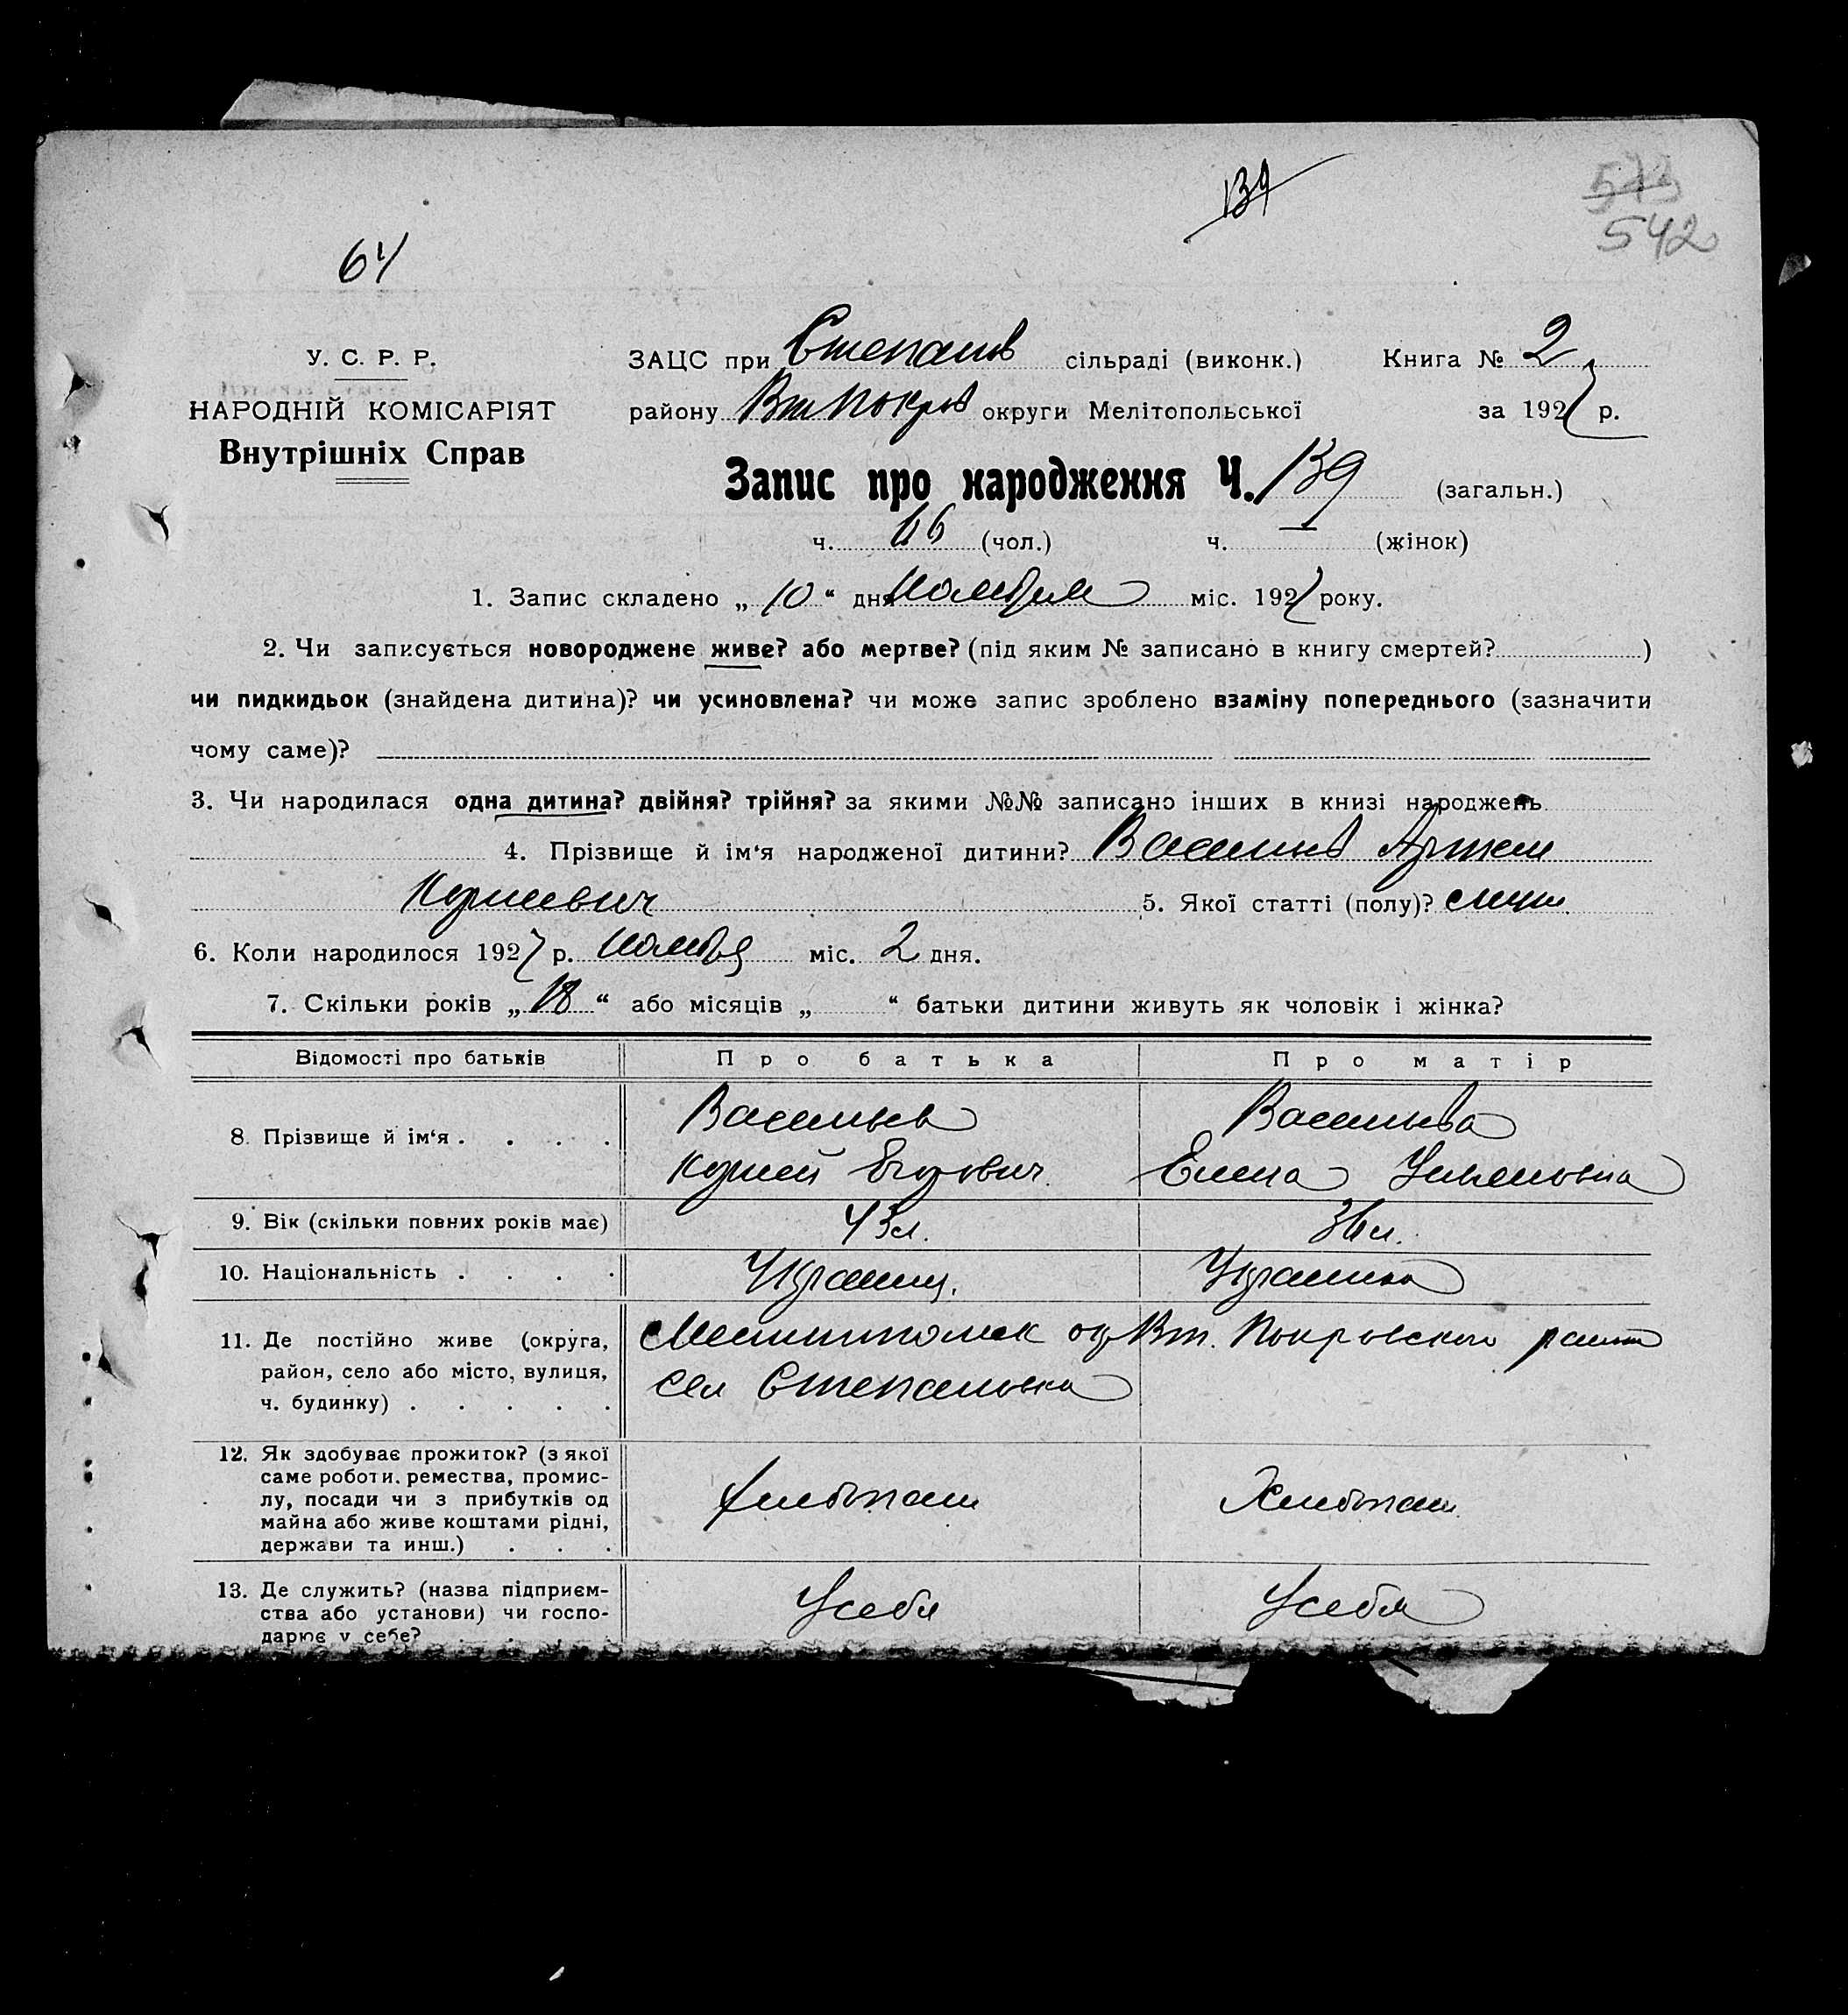 139
573
542
64
У. С. Р. Р.
НАРОДНІЙ КОМІСАРІЯТ
Внутрішніх Справ
ЗАЦС при Степанов сільраді (виконк.) Книга № 2
району Вт Покров округи Мелітопольської за 1927 р.
Запис про народження Ч. 139 (загальн.)
ч. 66 (чол.) ч. — (жінок)
1. Запис складено „ 10 “ дня ноября міс. 1927 року.
2. Чи записується новороджене живе? або мертве? (під яким № записано в книгу смертей? )
чи пидкидьок (знайдена дитина)? чи усиновлена? чи може запис зроблено взаміну попереднього (зазначити
чому саме)?
3. Чи народилася одна дитина? двійня? трійня? за якими №№ записано інших в книзі народжень
4. Прізвище й ім‘я народженої дитини? Василив Артем
Корнеевич 5. Якої статті (полу)?
6. Коли народилося 1927 р. ноября міс. 2 дня.
7. Скільки років „ 18 “ або місяців „ “ батьки дитини живуть як чоловік і жінка?
Відомості про батьків Про батька Про матір
8. Прізвище й ім‘я . . . . Васильев Васильева
Корней Егорович Елена Ульяновна
9. Вік (скільки повних років має) 43 л. 36 л.
10. Національність . . . . Украинц. Украинка
11. Де постійно живе (округа, Мелитополск ок Вт. Покровского района
район, село або місто, вулиця, сел Степановка
ч. будинку) . . . . .
12. Як здобуває прожиток? (з якої
саме роботи, ремества, промис-
лу, посади чи з прибутків од Хлебопаш Хлебопаш
майна або живе коштами рідні,
держави та инш.) . . .
13. Де служить? (назва підприєм- У себя У себя
ства або установи) чи госпо-
дарює у себе?